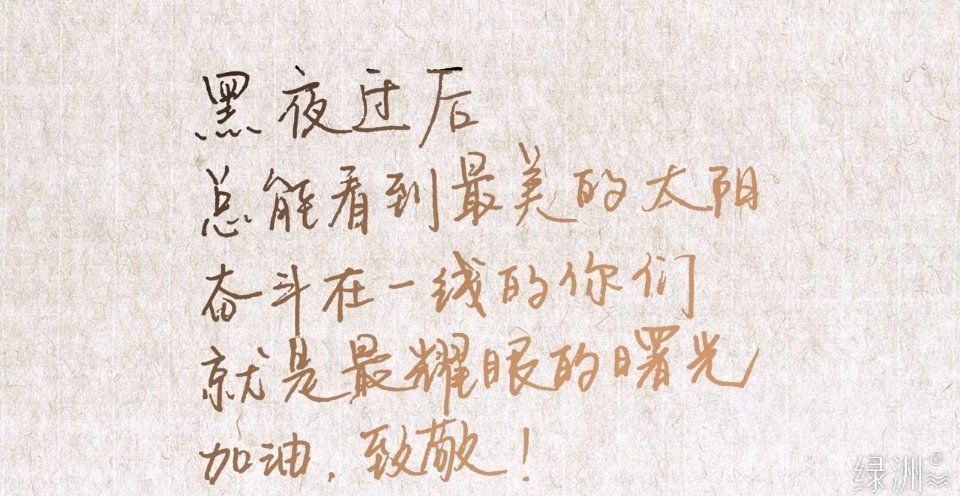 黑夜过后
总能看到最美的太阳
奋斗在一线的你们
就是最耀眼的曙光
加油，致敬！
绿洲